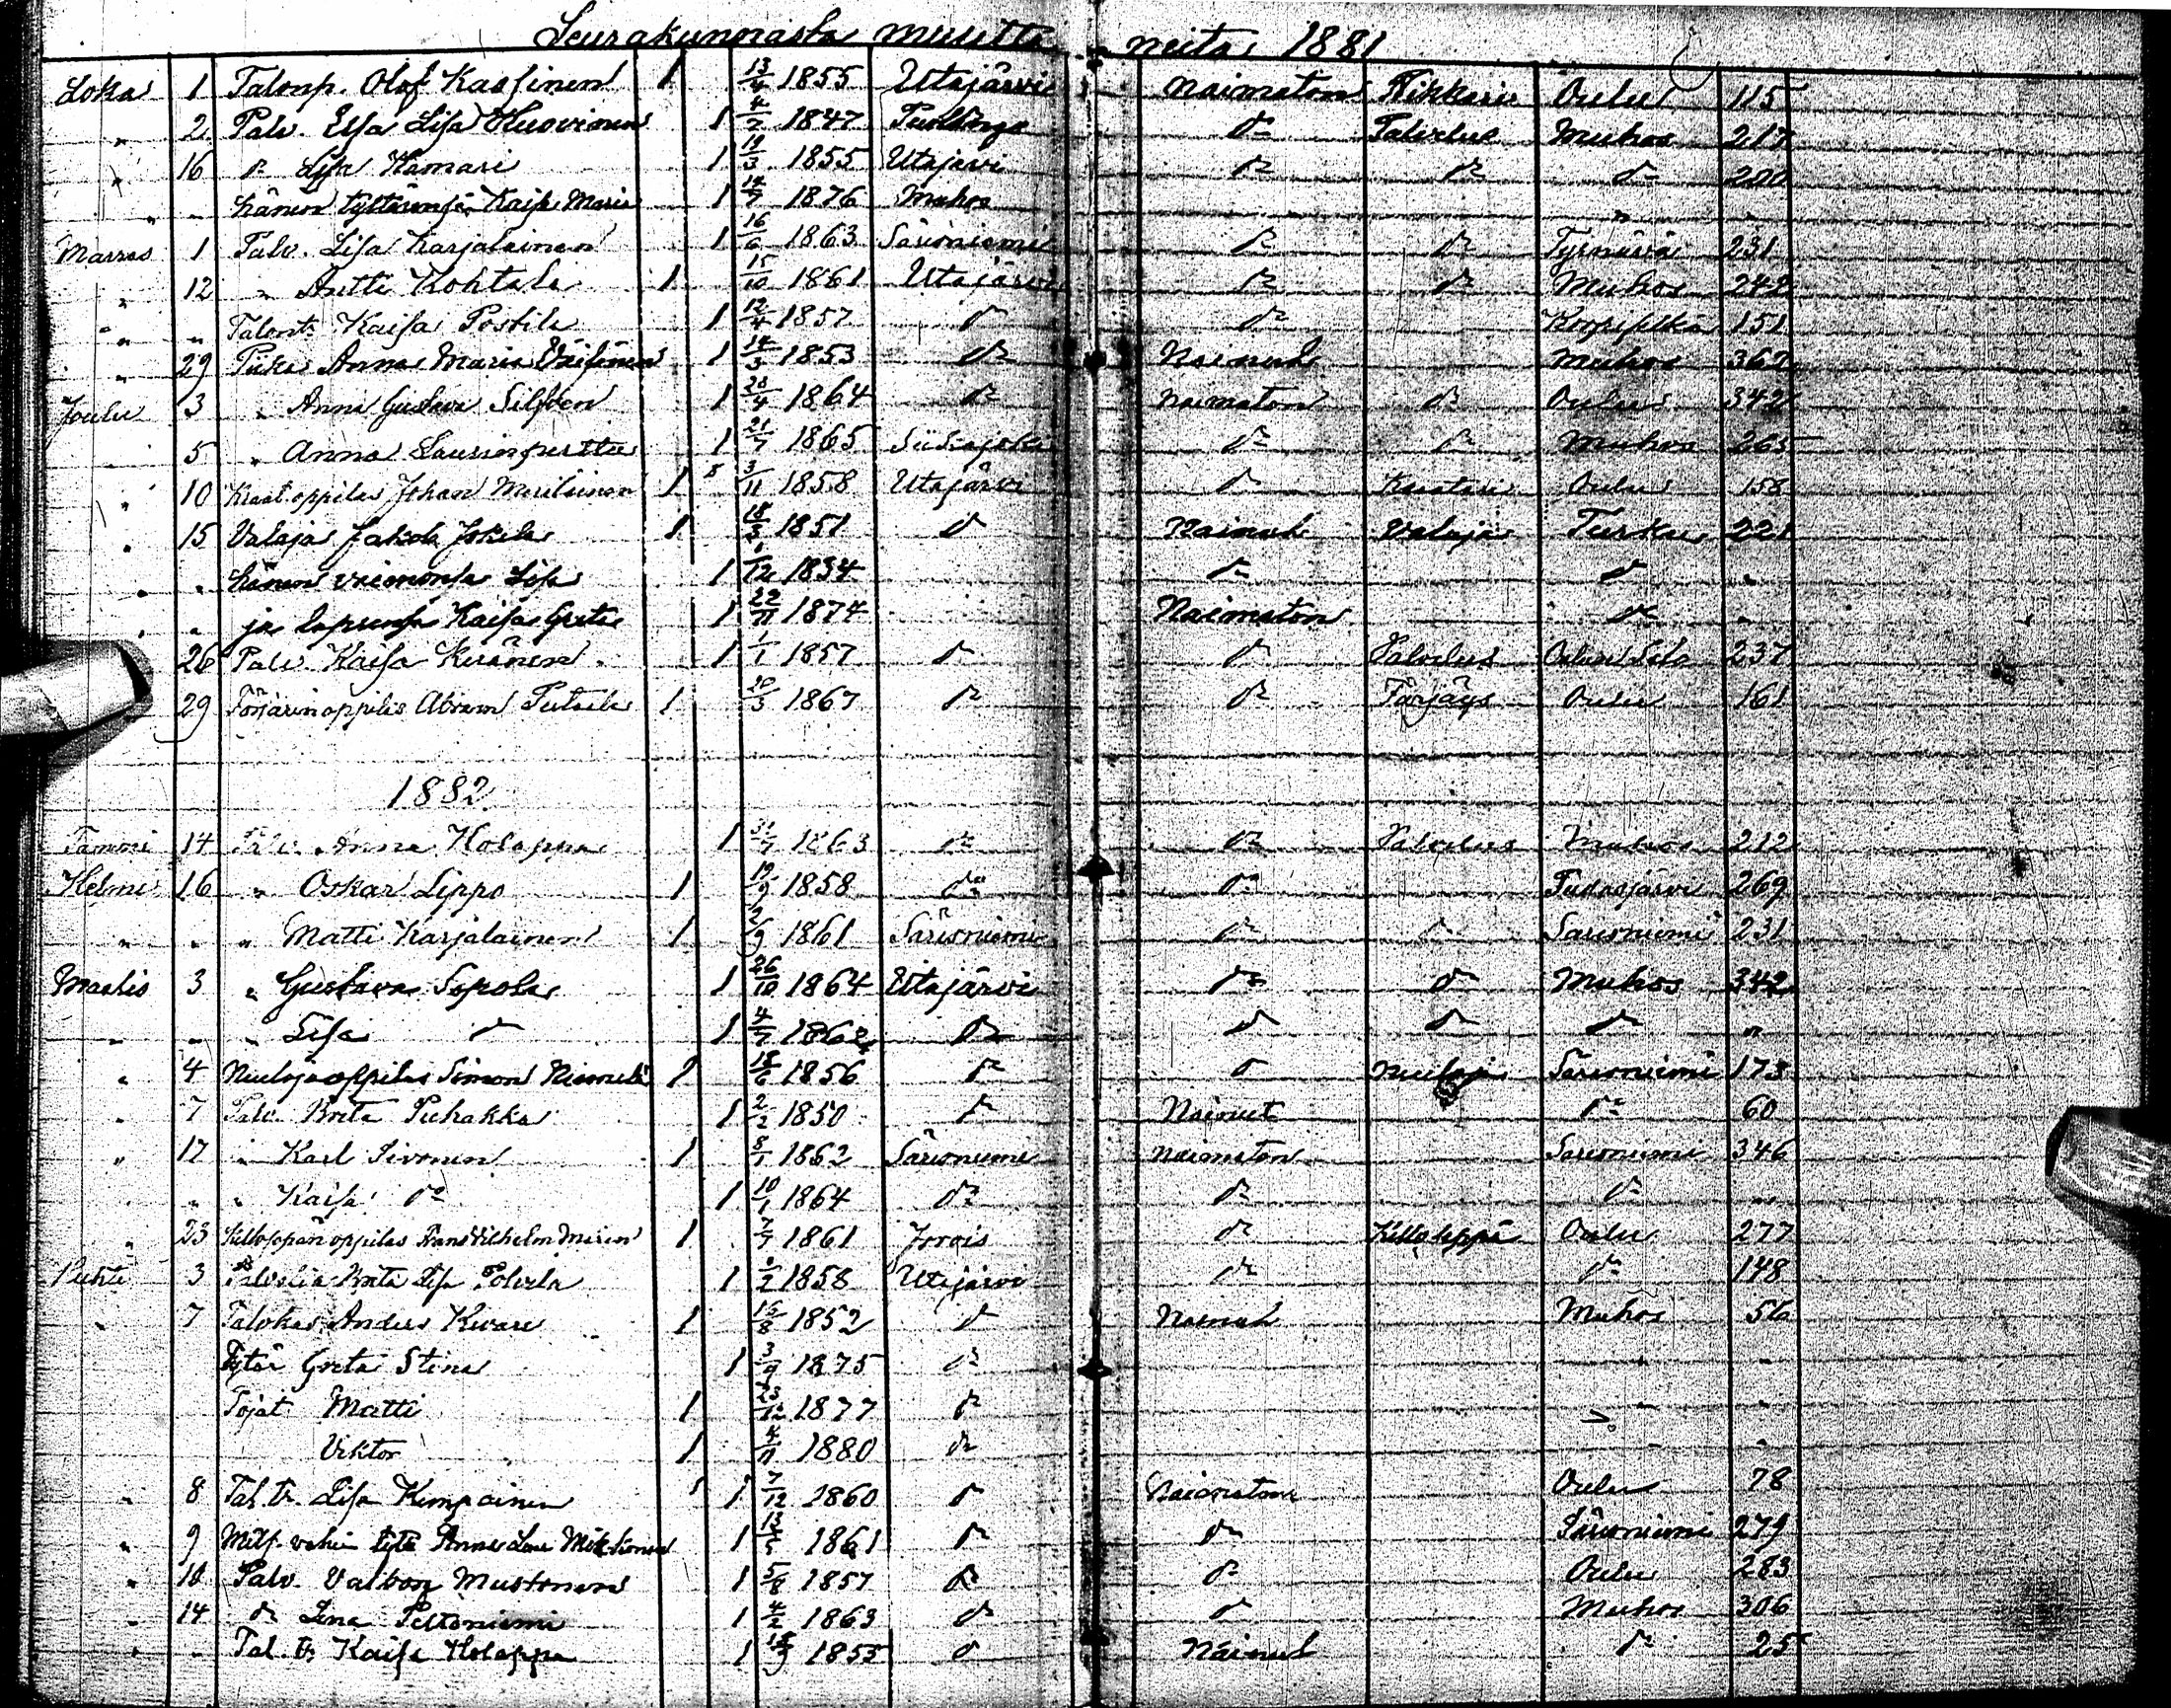 Seurakunnasta muuttaneita 1881
Loka 1 Talonp. Olof Kassinen 1 13/4 1855 Utajärvi Naimaton Nikkari Oulu 115
" 2 Palv. Elsa Lisa Huovinen 1 4/7 1847 " Palvelus Muhos 217
" 16 do Lisa Hamari 1 19/3 1855 Utajärvi do do do 200
" " hänen tyttärensä Kaisa Maria 1 14/7 1876 Muhos " "
Marras 1 Palv. Lisa Karjalainen 1 16/6 1863 Säresniemi do do Tyrnävä 231
" 12 " Antti Kohtala 1 15/10 1861 Utajärvi do do Muhos 242
" " Talont. Kaisa Postila 1 12/4 1857 do do 151
" 29 Piika Anna Maria Väisänen 1 14/3 1853 do Nainut Muhos 362
Joulu 3 " Anna Gustava Silfven 1 20/4 1864 do Naimaton do Oulu 342
" 5 " Anna Laurinperttu 1 21/7 1865 Siikajoki do do Muhos 265
" 10 oppilas Johan Meriläinen 1 3/11 1858 Utajärvi do Oulu 158
" 15 Valaja Jakob Jokela 1 18/3 1851 do Nainut Valaja Turku 221
" " hänen vaimonsa Lisa 1 /12 1834 do do "
" " ja lapsensa Kaisa Greta 1 22/11 1874 Naimaton do "
26 Palv. Kaisa Keränen 1 1/1 1857 do do Palvelus Oulun 237
29 Förjärinoppilas Abram 1 20/3 1867 do do Förjäys Oulu 161
1882
Tammi 14 Palv. Anna Holappa 1 31/7 1863 do do Palvelus Muhos 212
Helmi 16 " Oskar Lippo 1 19/9 1858 do do Pudasjärvi 269
" " " Matti Karjalainen 1 2/9 1861 Säresniemi do do Säresniemi 231
Maalis 3 " Gustava Sopola 1 26/10 1864 Utajärvi do do Muhos 342
" " " Lisa do 1 4/7 1862 do do do do "
" 4 oppilas Simon Niemelä 1 18/6 1856 do do Säresniemi 173
" 7 Palv. Brita Puhakka 1 2/2 1850 do Nainut do 60
" 17 " Karl Sivonen 1 8/1 1862 Säresniemi Naimaton Säresniemi 346
" " " Kaisa do 1 10/1 1864 do do do "
" 23 oppilas Frans Vilhelm 1 7/7 1861 Jorois do Kelloseppä Oulu 277
Huhti 3 Brita Lisa 1 /2 1858 Utajärvi do do 148
" 7 Anders Kivari 1 15/8 1852 do Nainut Muhos 56
Tytär Greta Stina 1 3/9 1875 do " "
Pojat Matti 1 23/12 1877 do " "
Viktor 1 4/11 1880 do " "
" 8 Tal. tr. Lisa Kemppainen 1 7/12 1860 do Naimaton Oulu 78
" 9 Mets. vahin tytö Anna Lena 1 1861 do do Säresniemi 279
" 10 Palv. Valbor Mustonen 1 5/8 1857 do do Oulu 283
" 14 do Lena Peltoniemi 1 4/2 1863 do do Muhos 306
" " Tal. tr. Kaisa Holappa 1 1855 do Nainut do 25